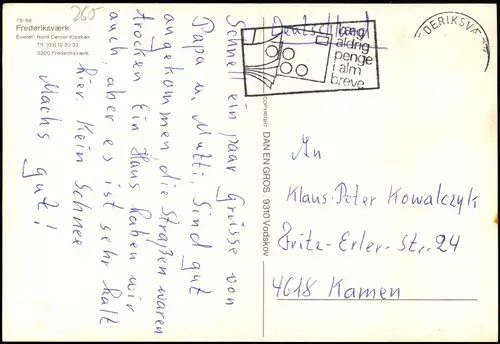 265
76-56
Frederiksværk
Eneret: Nord Center Kiosken
Tlf. (03) 12 29 33
3300 Frederiksværk
Schnell ein paar Grüsse von
Papa u. Mutti. Sind gut
angekommen, die Straßen waren
trocken. Ein Haus haben wir
auch, aber es ist sehr kalt
hier. Kein Schnee
Machs gut!
Copyright: DAN EN GROS 9310 Vodskov
Deutschland
læg
aldrig
penge
i alm
breve
DERIKSVÆ
An
Klaus-Peter Kowalczyk
Fritz-Erler-Str. 24
4618 Kamen